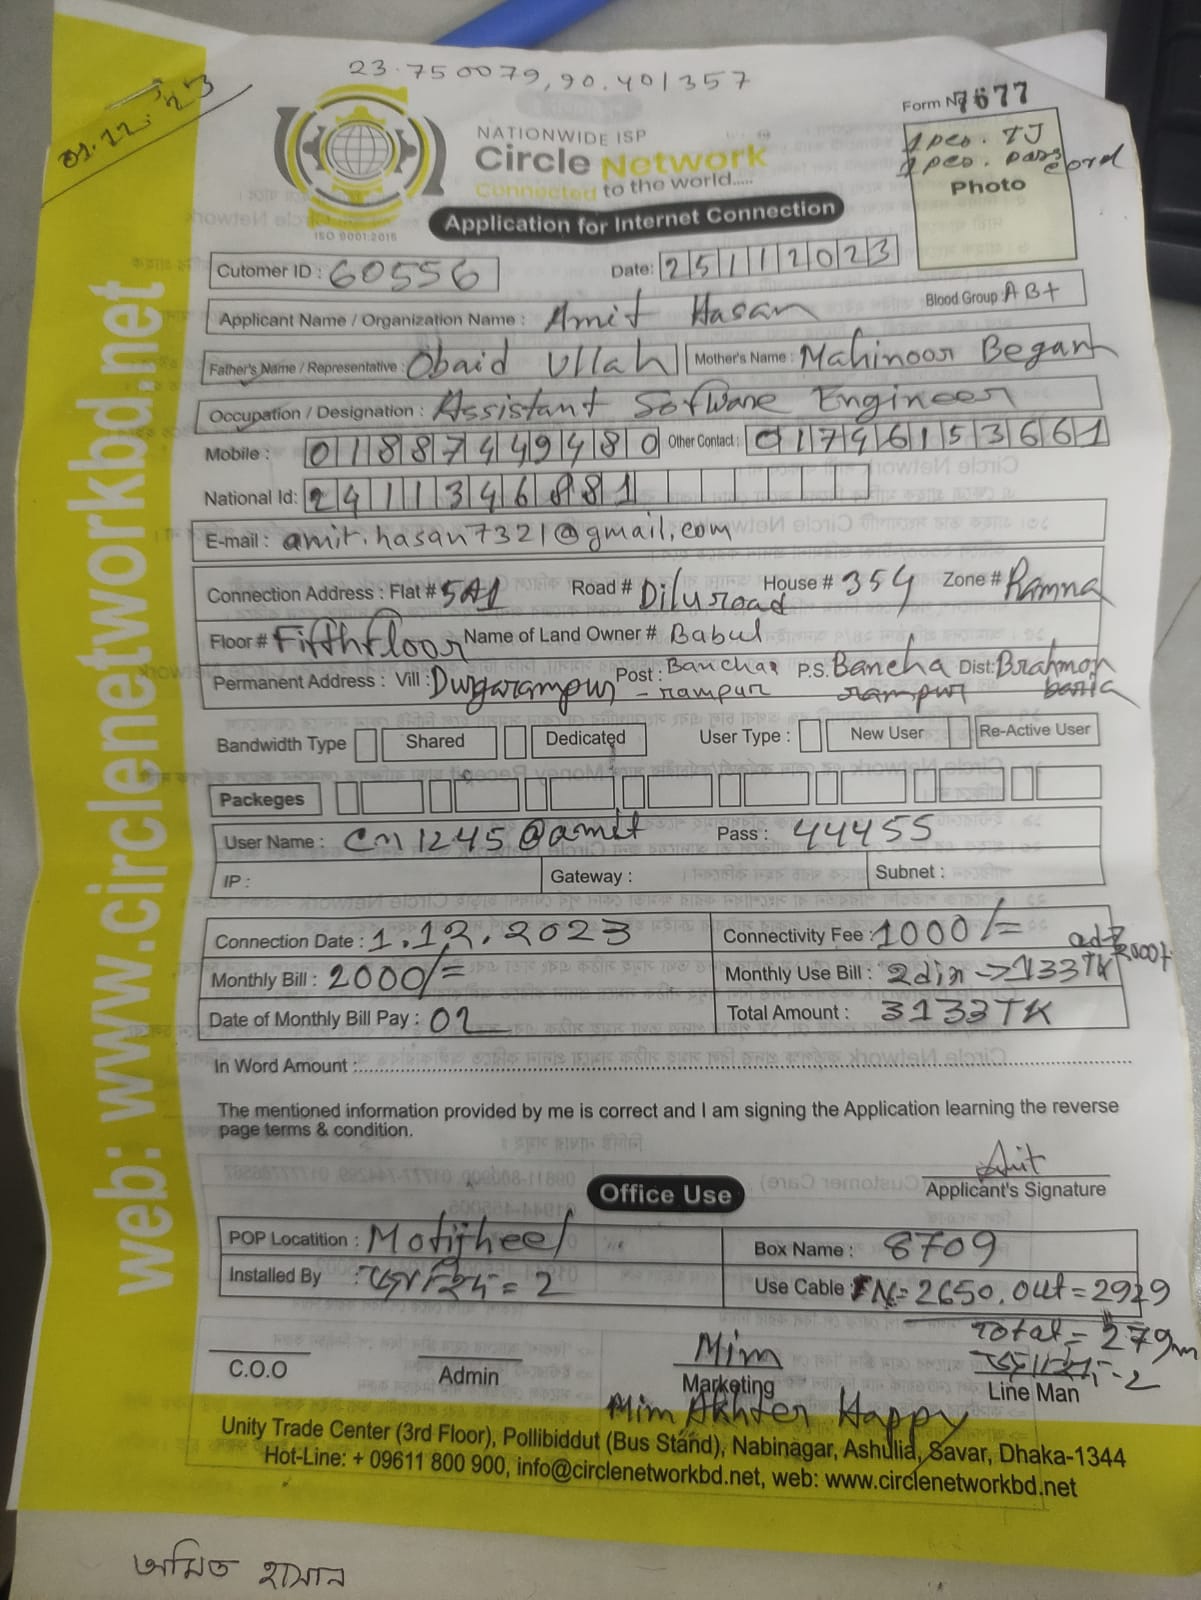 23.750079,90.401357
01.12.23
Form No 7677
NATIONWIDE ISP
Circle Network
Connected to the world.....
ISO 9001:2015
1 pcs.
1 pcs. pass
Photo
Application for Internet Connection
Cutomer ID : 60556 Date: 25112023
Applicant Name / Organization Name : Amit Hasan Blood Group : AB+
Father's Name / Representative : Obaid Ullah Mother's Name : Mahinoor Begam
Occupation / Designation : Assistant Software Engineer
Mobile : 01887449480 Other Contact : 01746153661
National Id: 2411346881
E-mail : amit.hasan7321@gmail.com
Connection Address : Flat # 5A1 Road # Dilu road House # 354 Zone # Ramna
Floor # Fifth floor Name of Land Owner # Babul
Permanent Address : Vill : Durgarampur Post : Bancha-rampur P.S. Bancha rampur Dist: Brahmon baria
Bandwidth Type Shared Dedicated User Type : New User Re-Active User
Packeges
User Name : cn1245@amit Pass : 44455
IP : Gateway : Subnet :
Connection Date : 1.12.2023 Connectivity Fee : 1000/=
Monthly Bill : 2000/= Monthly Use Bill : 2din → 133TK
Date of Monthly Bill Pay : 02 Total Amount : 3133TK
In Word Amount :
The mentioned information provided by me is correct and I am signing the Application learning the reverse
page terms & condition.
Amit
Applicant's Signature
Office Use
POP Locatition : Motijheel Box Name : 8709
Installed By : = 2 Use Cable : IN= 2650. out = 2929
Total = 279m
C.O.O Admin Mim
Marketing Line Man
Mim Akhter Happy
Unity Trade Center (3rd Floor), Pollibiddut (Bus Stand), Nabinagar, Ashulia, Savar, Dhaka-1344
Hot-Line: + 09611 800 900, info@circlenetworkbd.net, web: www.circlenetworkbd.net
web: www.circlenetworkbd.net
অমিত হাসান